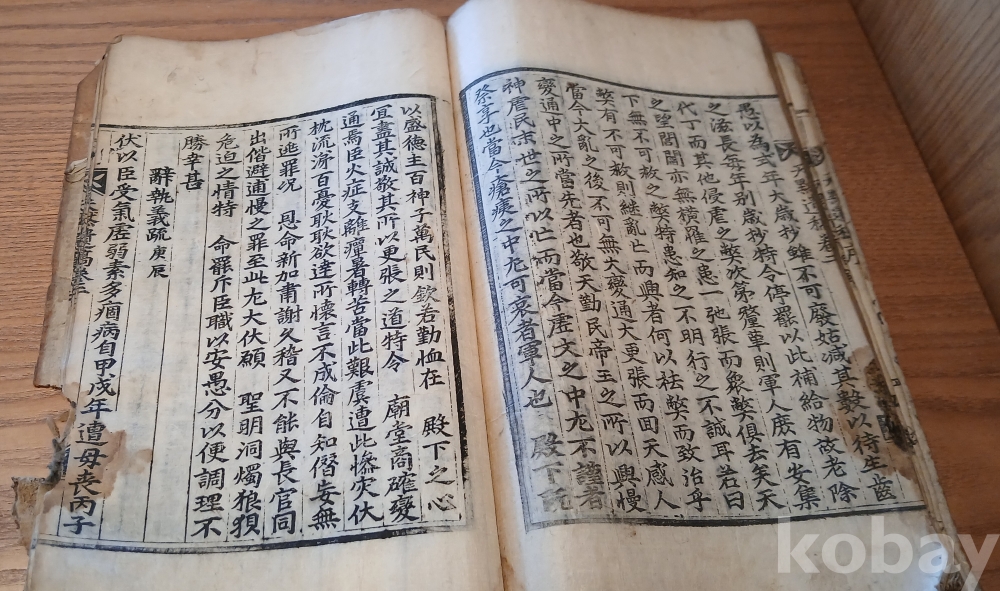 愚以為式年大歲抄雖不可廢姑減其數以待生齒
之滋長每年別歲抄特令停罷以此補給物故老除
代丁而其他侵虐之獘次第釐革則軍人庶有安集
之望閭閻亦無橫罹之患一弛張而衆獘俱去矣天
下無不可救之獘特患知之不明行之不誠耳若曰
獘有不可救則繼亂亡而興者何以祛獘而致治乎
當今大亂之後不可無大變通大更張而回天感人
變通中之所當先者也敬天勤民帝王之所以興慢
神虐民末世之所以亡而當今虛文之中尤不謹者
祭享也當今瘡痍之中尤可哀者軍人也 殿下
以盛德主百神子萬民則欽若勤恤在 殿下之心
宜盡其誠敬其所以更張之道特令 廟堂商確變
通焉臣火症支離瘴暑轉苦當此艱虞遭此慘灾伏
枕流涕百憂耿耿欲達所懷言不成倫自知僭妄無
所逃罪况 恩命新加肅謝久稽又不能與長官同
出偕避逋慢之罪至此尤大伏願 聖明洞燭狼狽
危迫之情特 命罷斥臣職以安愚分以便調理不
勝幸甚
辭執義疏 庚辰
伏以臣受氣虛弱素多痼病自甲戌年遭母喪丙子
kobay